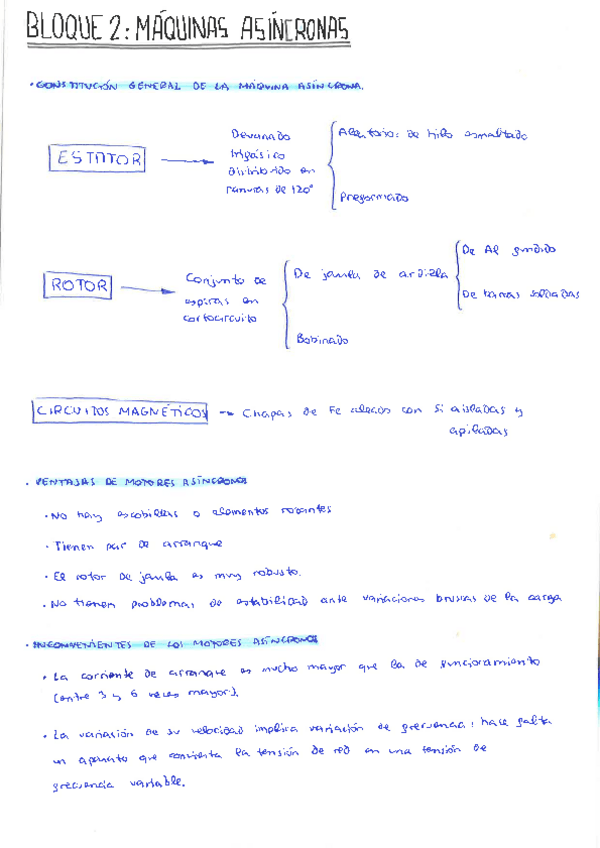 BLOQUE 2: MÁQUINAS ASÍNCRONAS
· CONSTITUCIÓN GENERAL DE LA MÁQUINA ASÍNCRONA.
ESTATOR
Devanado
trifásico
distribuido en
ranuras de 120°
Aleatorio: de hilo esmaltado
Preformado
ROTOR
Conjunto de
espiras en
cortocircuito
De jaula de ardilla
De Al fundido
De barras soldadas
Bobinado
CIRCUITOS MAGNÉTICOS → Chapas de Fe aleado con Si aisladas y
apiladas
· VENTAJAS DE MOTORES ASÍNCRONOS
· No hay escobillas o elementos rozantes
· Tienen par de arranque
· El rotor de jaula es muy robusto.
· No tienen problemas de estabilidad ante variaciones bruscas de la carga
· INCONVENIENTES DE LOS MOTORES ASÍNCRONOS
· La corriente de arranque es mucho mayor que la de funcionamiento
(entre 3 y 6 veces mayor).
· La variación de su velocidad implica variación de frecuencia: hace falta
un aparato que convierta la tensión de red en una tensión de
frecuencia variable.